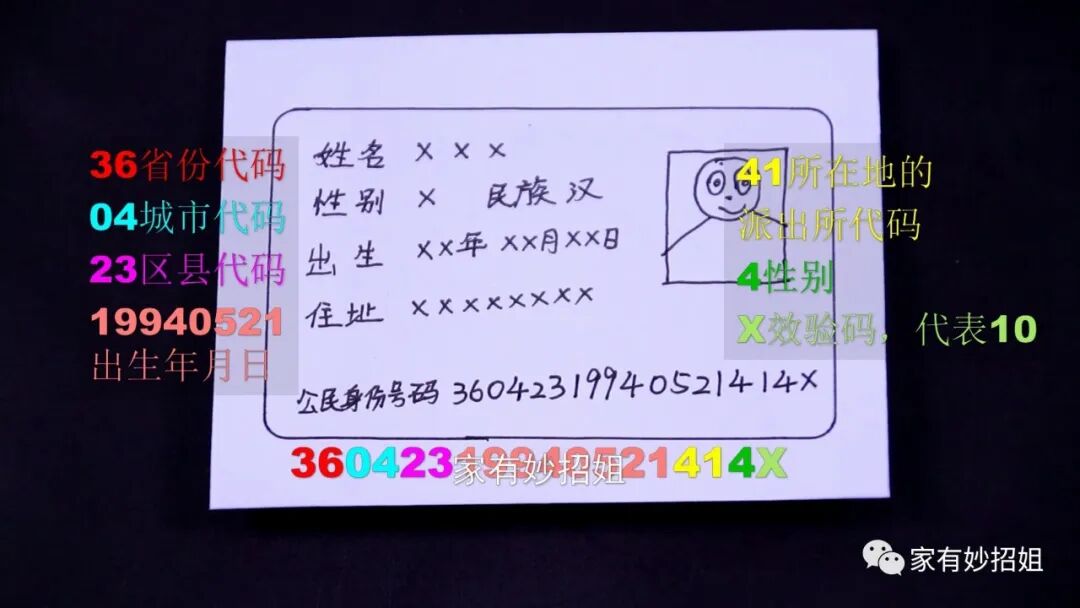 36省份代码
04城市代码
23区县代码
19940521
出生年月日
姓名 ×××
性别 × 民族 汉
出生 ××年××月××日
住址 ××××××××
公民身份号码 36042319940521414X
41所在地的
派出所代码
4性别
X效验码，代表10
36042319940521414X
家有妙招姐
家有妙招姐